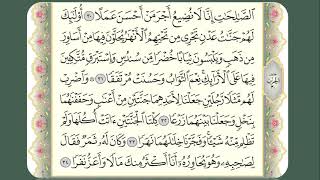 ٱلصَّـٰلِحَـٰتِ إِنَّا لَا نُضِيعُ أَجْرَ مَنْ أَحْسَنَ عَمَلًا ٣٠ أُو۟لَـٰٓئِكَ
لَهُمْ جَنَّـٰتُ عَدْنٍ تَجْرِى مِن تَحْتِهِمُ ٱلْأَنْهَـٰرُ يُحَلَّوْنَ فِيهَا مِنْ أَسَاوِرَ
مِن ذَهَبٍ وَيَلْبَسُونَ ثِيَابًا خُضْرًا مِّن سُندُسٍ وَإِسْتَبْرَقٍ مُّتَّكِـِٔينَ
فِيهَا عَلَى ٱلْأَرَآئِكِ نِعْمَ ٱلثَّوَابُ وَحَسُنَتْ مُرْتَفَقًا ٣١ وَٱضْرِبْ
لَهُم مَّثَلًا رَّجُلَيْنِ جَعَلْنَا لِأَحَدِهِمَا جَنَّتَيْنِ مِنْ أَعْنَـٰبٍ وَحَفَفْنَـٰهُمَا
بِنَخْلٍ وَجَعَلْنَا بَيْنَهُمَا زَرْعًا ٣٢ كِلْتَا ٱلْجَنَّتَيْنِ ءَاتَتْ أُكُلَهَا وَلَمْ
تَظْلِم مِّنْهُ شَيْـًٔا وَفَجَّرْنَا خِلَـٰلَهُمَا نَهَرًا ٣٣ وَكَانَ لَهُۥ ثَمَرٌ فَقَالَ
لِصَـٰحِبِهِۦ وَهُوَ يُحَاوِرُهُۥٓ أَنَا۠ أَكْثَرُ مِنكَ مَالًا وَأَعَزُّ نَفَرًا ٣٤